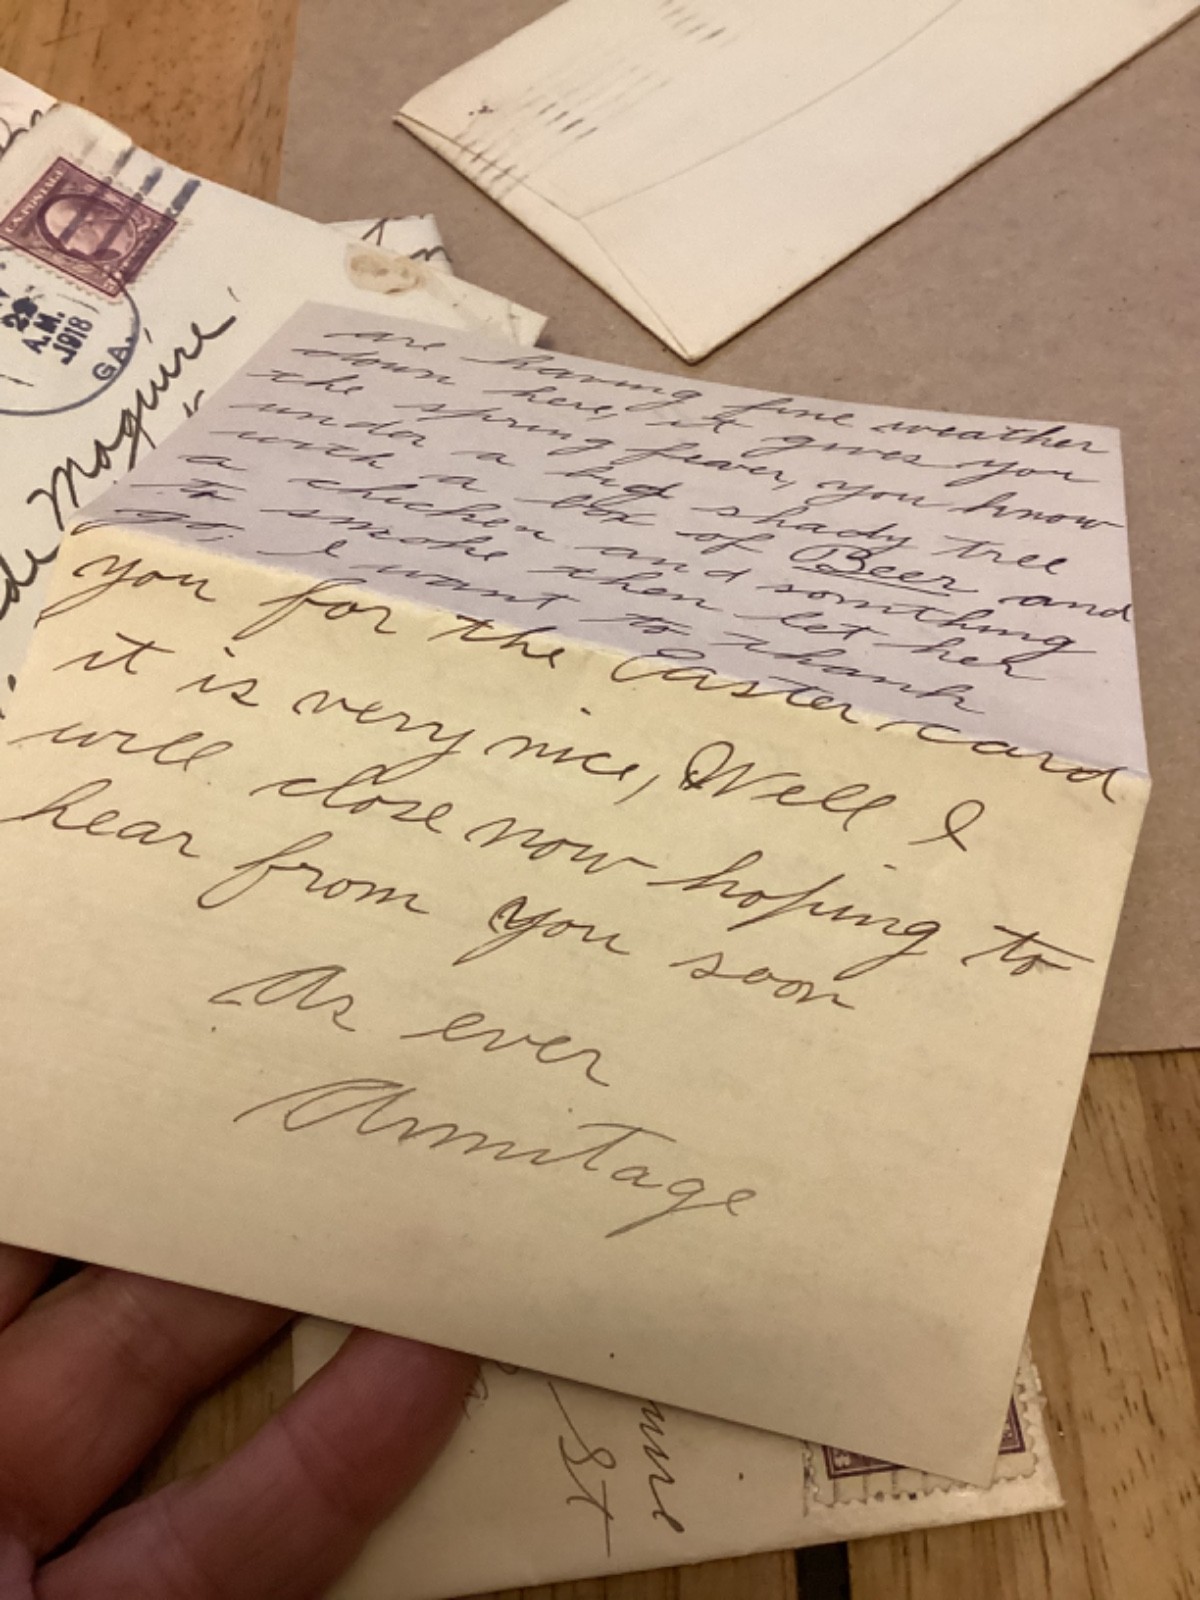 U.S. POSTAGE
29
A.M.
1918
GA.
Maguire
are having fine weather
down here, it gives you
the spring fever, you know
under a big shady tree
with a box of Beer and
a chicken and somthing
to smoke then let her
go, I want to thank
you for the Easter card
it is very nice, Well I
will close now hoping to
hear from you soon
As ever
Armitage
St